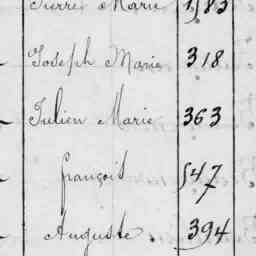 Pierre Marie 1,83
Joseph Marie 318
Julien Marie 363
françois 547
Auguste. 394